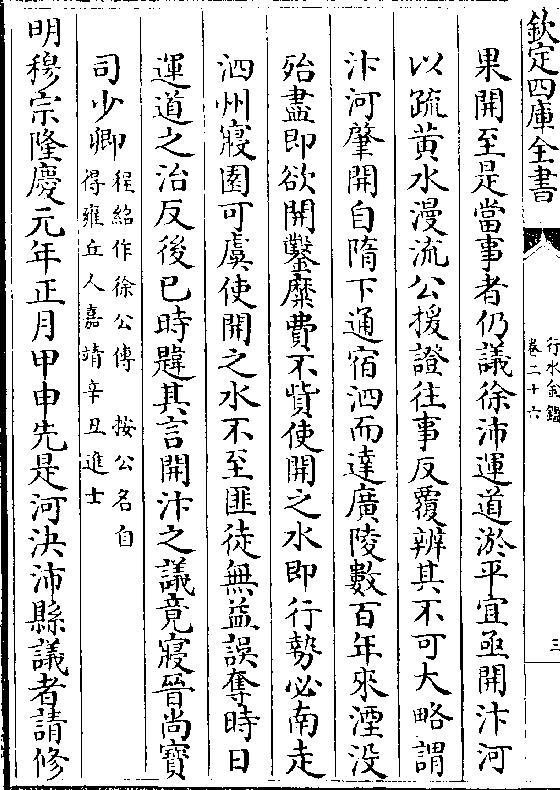 欽定四庫全書
行水金鑑
卷二十六
三
果開至是當事者仍議徐沛運道淤平宜亟開汴河
以疏黃水漫流公援證往事反覆辨其不可大略謂
汴河肇開自隋下通宿泗而達廣陵數百年來湮没
殆盡即欲開鑿糜費不貲使開之水即行勢必南走
泗州寢園可虞使開之水不至匪徒無益誤奪時日
運道之治反後已時韙其言開汴之議竟寢晉尚寶
司少卿程紹作徐公傳 按公名自
得雍丘人嘉靖辛丑進士
明穆宗隆慶元年正月甲申先是河決沛縣議者請修